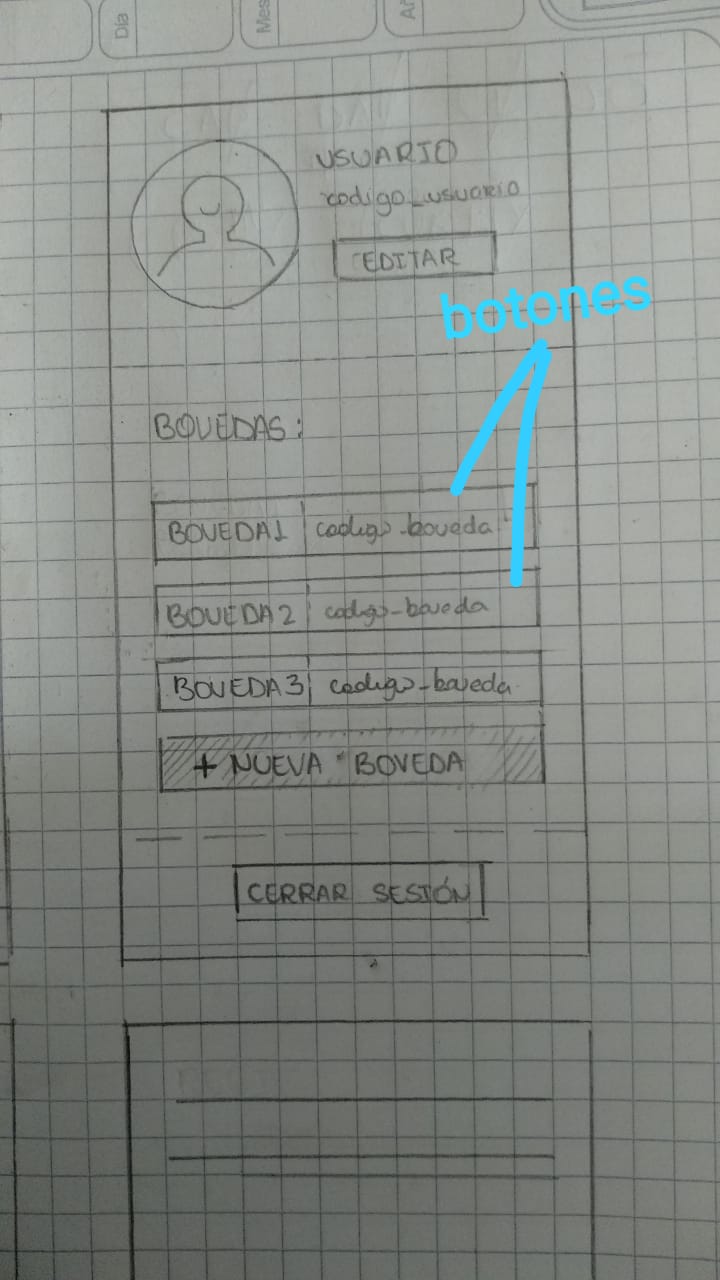 Día
Mes
Añ
USUARIO
codigo_usuario
EDITAR
botones
BOVEDAS:
BOVEDA1 codigo-boveda
BOVEDA2 codigo-boveda
BOVEDA3 codigo-boveda
+ NUEVA BOVEDA
CERRAR SESIÓN